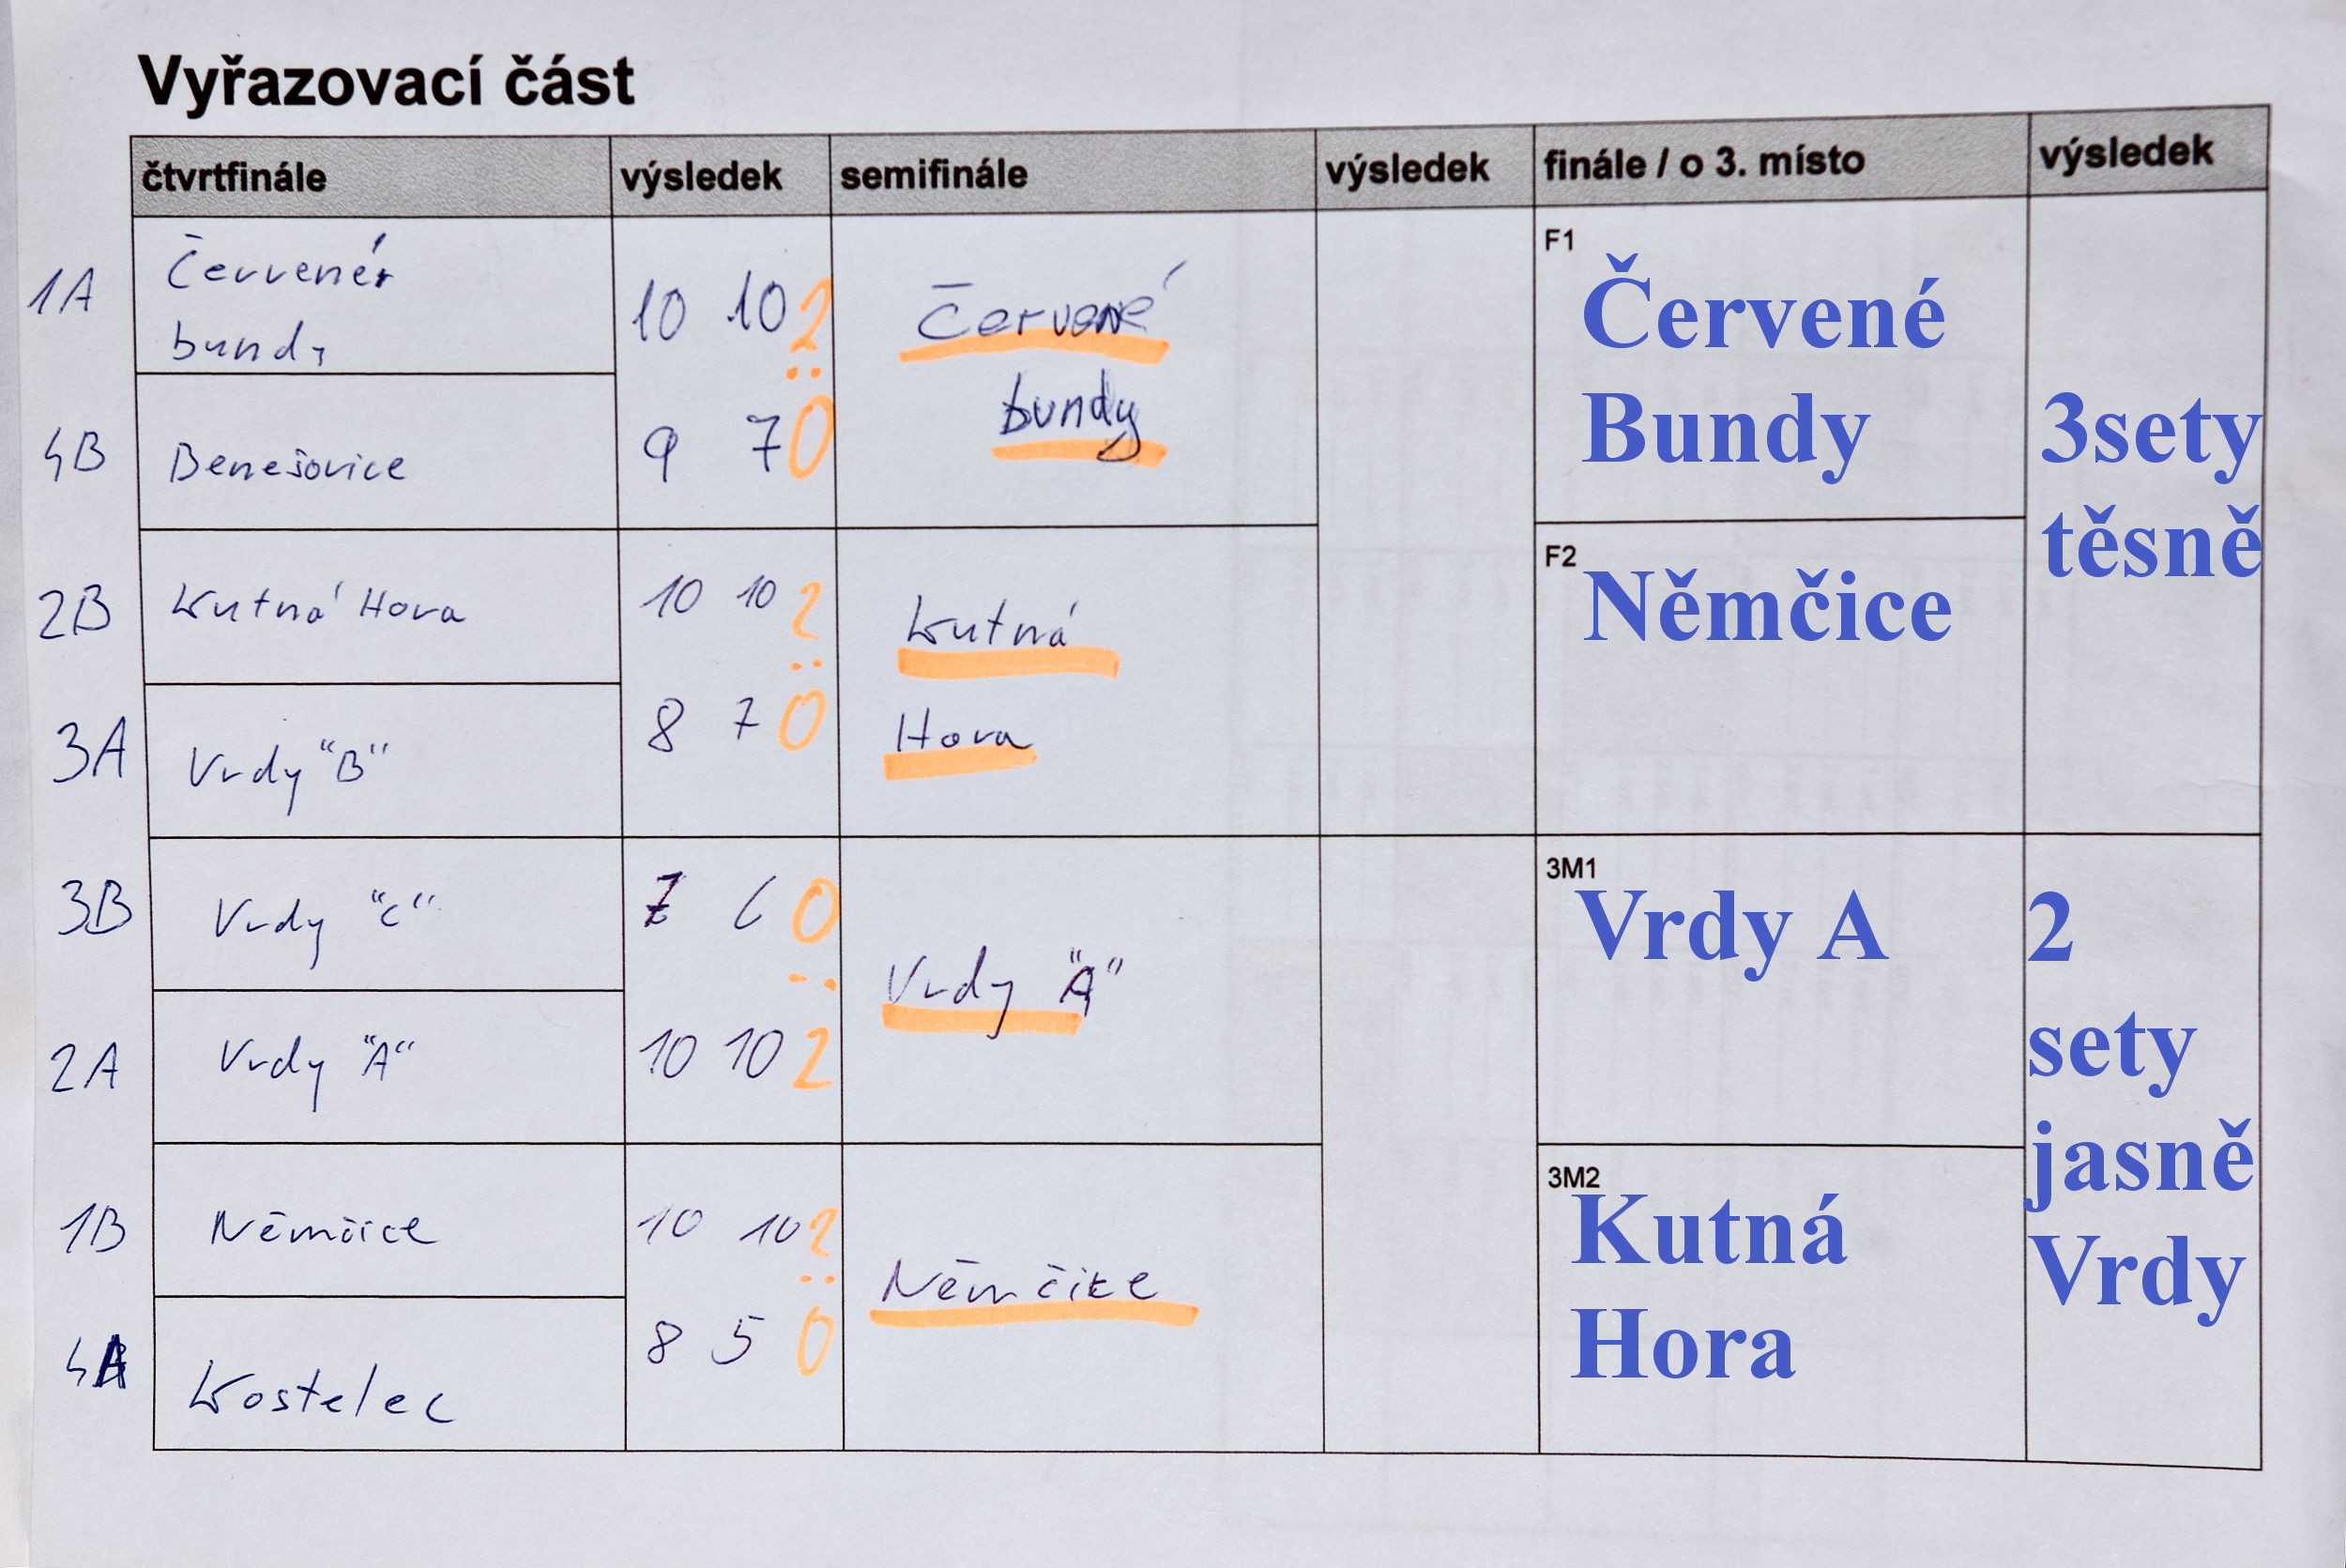 Vyřazovací část
čtvrtfinále výsledek semifinále výsledek finále / o 3. místo výsledek
1A Červené bundy 10 10 2 Červené bundy F1 Červené Bundy 3sety těsně
:
4B Benešovice 9 7 0
2B Kutná Hora 10 10 2 Kutná Hora F2 Němčice
:
3A Vrdy "B" 8 7 0
3B Vrdy "C" 7 6 0 Vrdy "A" 3M1 Vrdy A 2 sety jasně Vrdy
:
2A Vrdy "A" 10 10 2
1B Němčice 10 10 2 Němčice 3M2 Kutná Hora
:
4A Kostelec 8 5 0